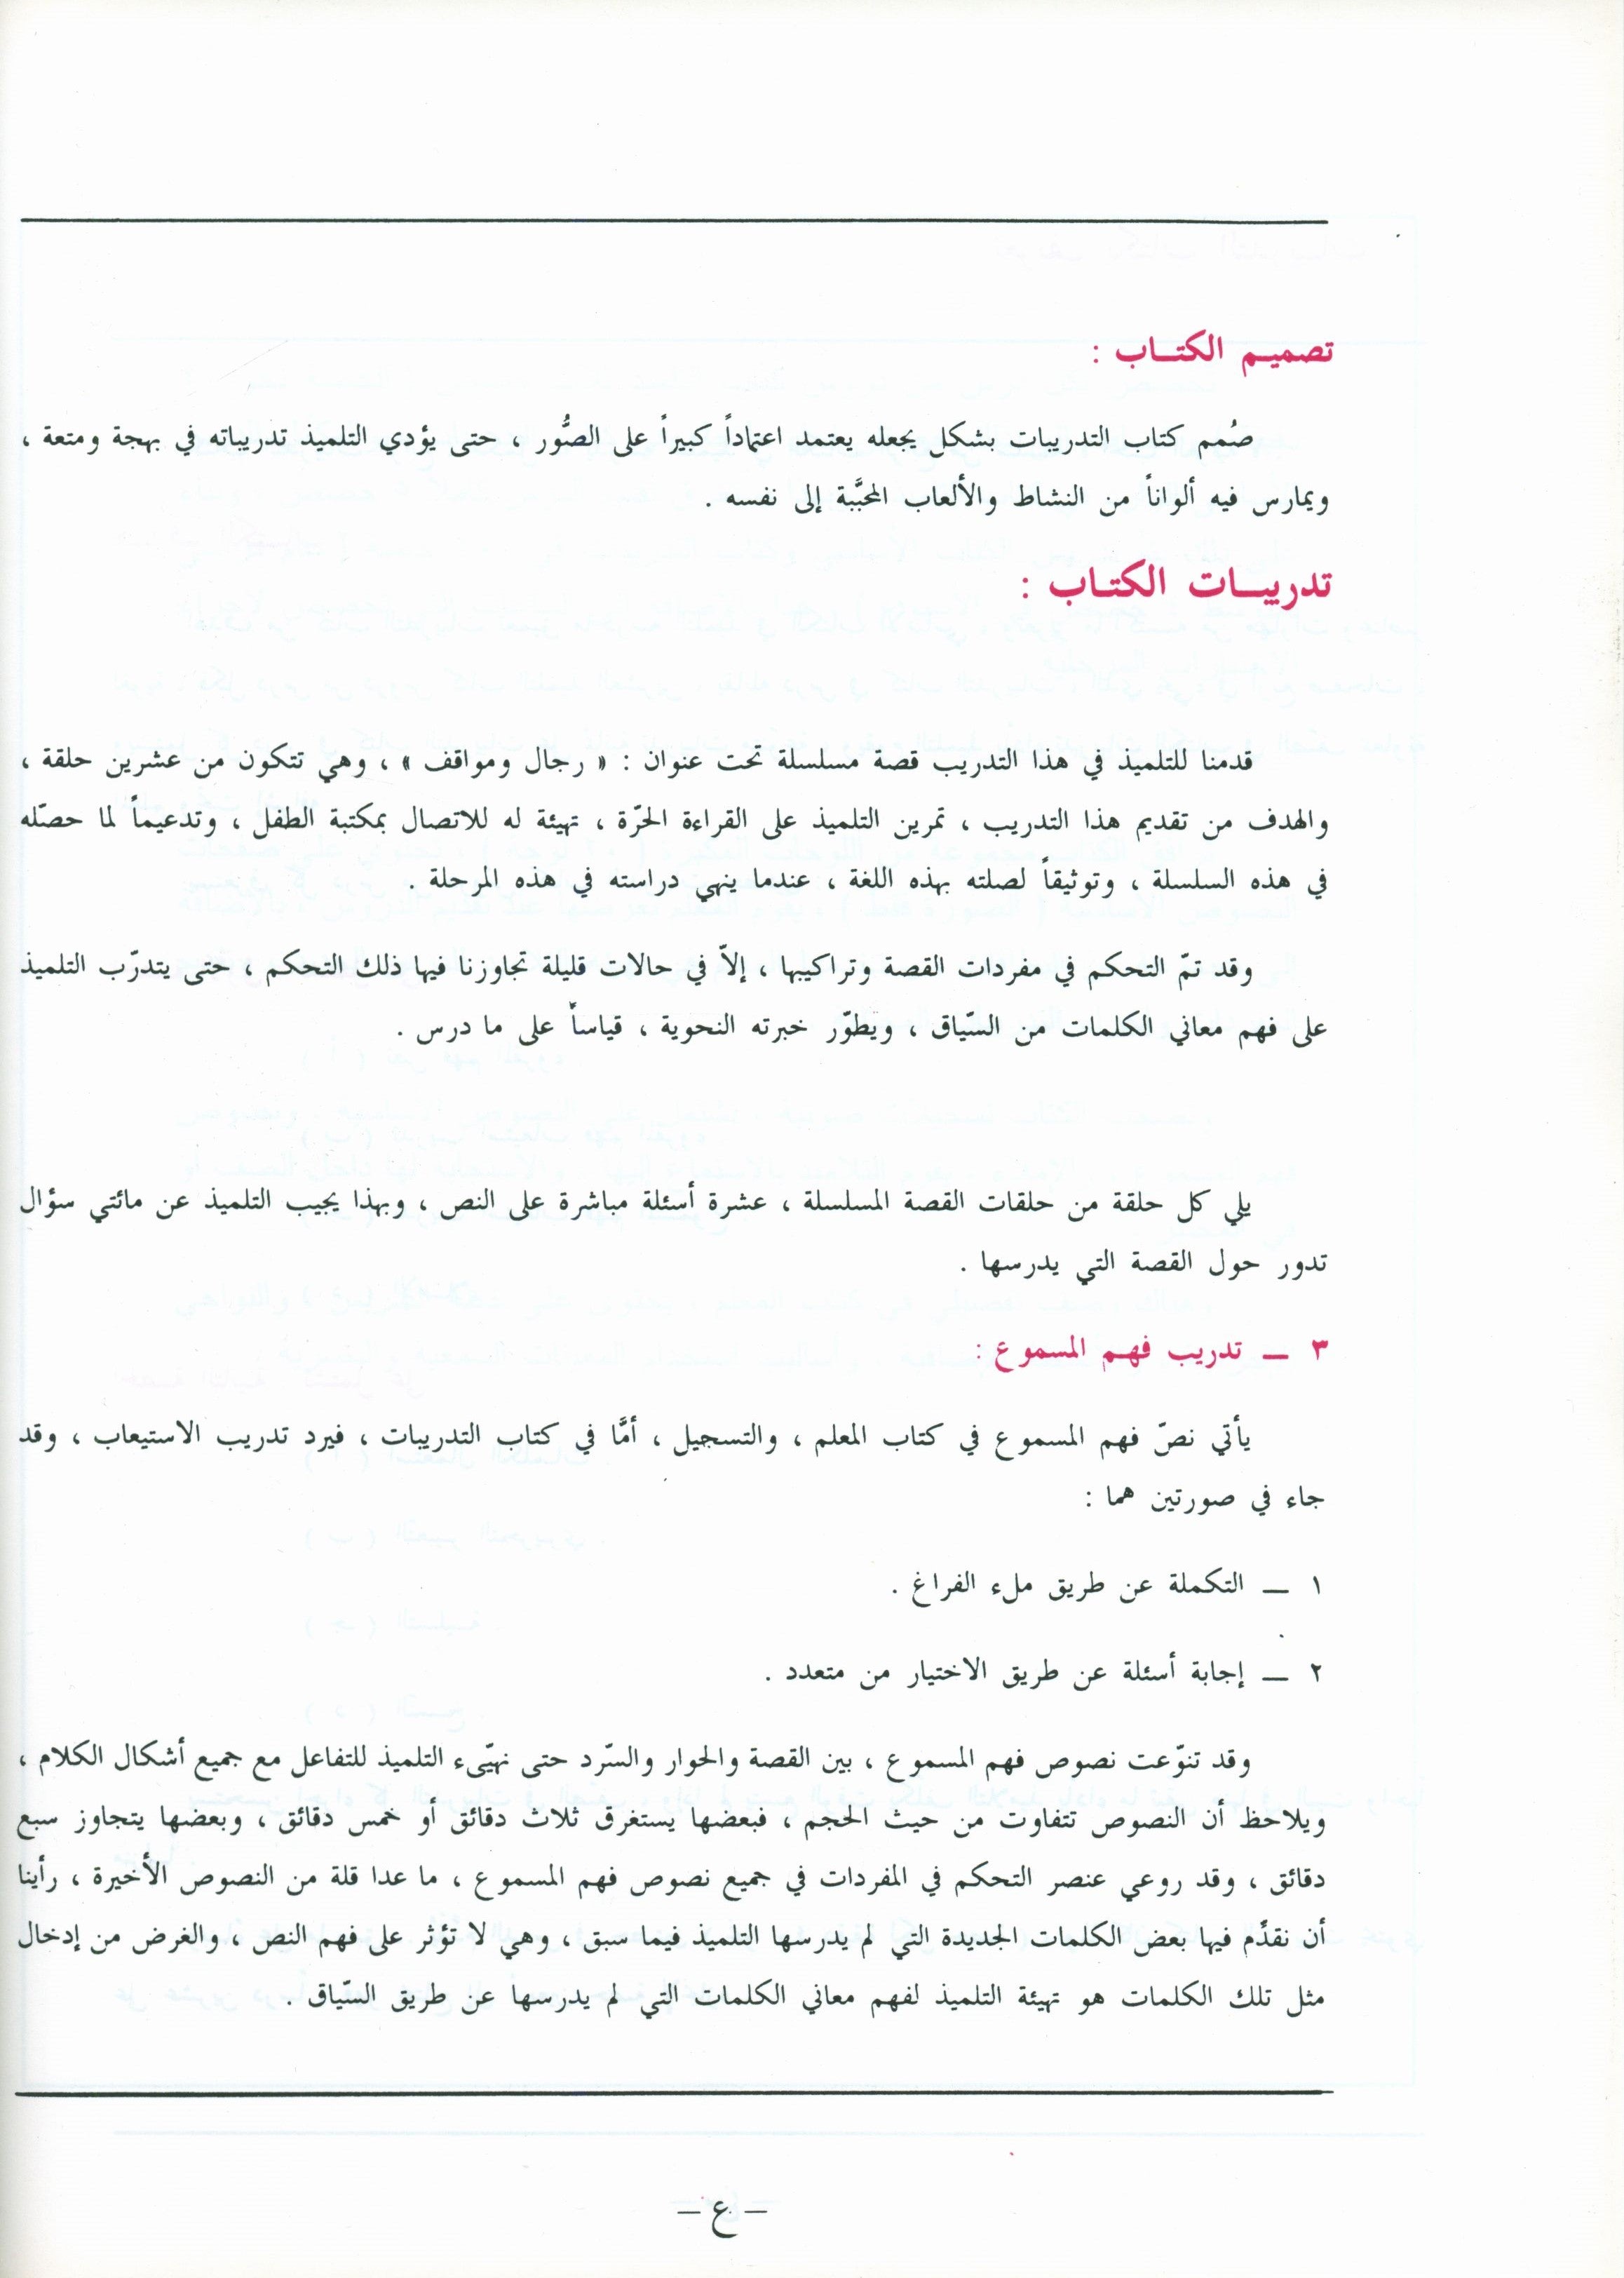 تصميم الكتاب :
صُمم كتاب التدريبات بشكل يجعله يعتمد اعتماداً كبيراً على الصُّور ، حتى يؤدي التلميذ تدريباته في بهجة ومتعة ،
ويمارس فيه ألواناً من النشاط والألعاب المحبَّبة إلى نفسه .
تدريبات الكتاب :
قدمنا للتلميذ في هذا التدريب قصة مسلسلة تحت عنوان : « رجال ومواقف » ، وهي تتكون من عشرين حلقة ،
والهدف من تقديم هذا التدريب ، تمرين التلميذ على القراءة الحرّة ، تهيئة له للاتصال بمكتبة الطفل ، وتدعيماً لما حصّله
في هذه السلسلة ، وتوثيقاً لصلته بهذه اللغة ، عندما ينهي دراسته في هذه المرحلة .
وقد تمّ التحكم في مفردات القصة وتراكيبها ، إلاّ في حالات قليلة تجاوزنا فيها ذلك التحكم ، حتى يتدرّب التلميذ
على فهم معاني الكلمات من السّياق ، ويطوّر خبرته النحوية ، قياساً على ما درس .
يلي كل حلقة من حلقات القصة المسلسلة ، عشرة أسئلة مباشرة على النص ، وبهذا يجيب التلميذ عن مائتي سؤال
تدور حول القصة التي يدرسها .
٣ ــ تدريب فهم المسموع :
يأتي نصّ فهم المسموع في كتاب المعلم ، والتسجيل ، أمَّا في كتاب التدريبات ، فيرد تدريب الاستيعاب ، وقد
جاء في صورتين هما :
١ ــ التكملة عن طريق ملء الفراغ .
٢ ــ إجابة أسئلة عن طريق الاختيار من متعدد .
وقد تنوّعت نصوص فهم المسموع ، بين القصة والحوار والسّرد حتى نهيّىء التلميذ للتفاعل مع جميع أشكال الكلام ،
ويلاحظ أن النصوص تتفاوت من حيث الحجم ، فبعضها يستغرق ثلاث دقائق أو خمس دقائق ، وبعضها يتجاوز سبع
دقائق ، وقد روعي عنصر التحكم في المفردات في جميع نصوص فهم المسموع ، ما عدا قلة من النصوص الأخيرة ، رأينا
أن نقدِّم فيها بعض الكلمات الجديدة التي لم يدرسها التلميذ فيما سبق ، وهي لا تؤثر على فهم النص ، والغرض من إدخال
مثل تلك الكلمات هو تهيئة التلميذ لفهم معاني الكلمات التي لم يدرسها عن طريق السّياق .
– ع –